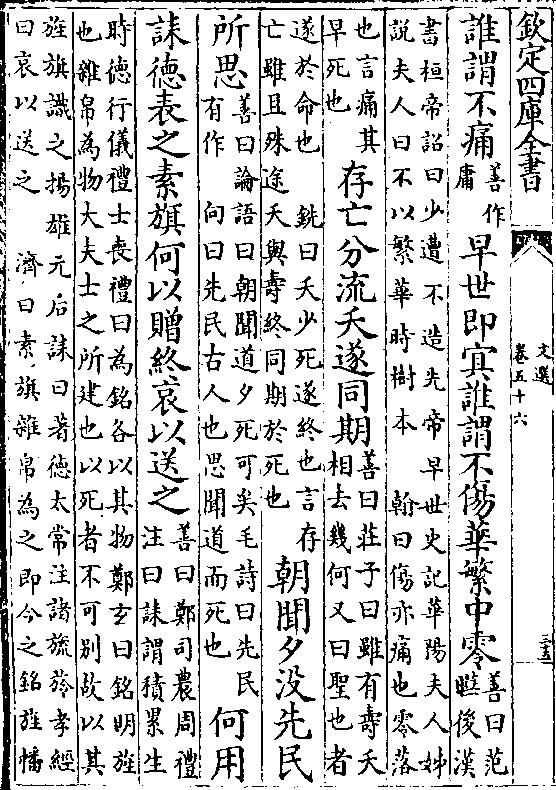 欽定四庫全書
文選
卷五十六
三五
誰謂不痛善作庸早世即冥誰謂不傷華繁中零善曰范曄後漢
書桓帝詔曰少遭不造先帝早世史記華陽夫人姊
說夫人曰不以繁華時樹本　翰曰傷亦痛也零落
也言痛其早死也存亡分流夭遂同期善曰莊子曰雖有壽夭相去幾何又曰聖也者
遂於命也　銑曰夭少死遂終也言存亡雖且殊途夭與壽終同期於死也朝聞夕没先民
所思善曰論語曰朝聞道夕死可矣毛詩曰先民有作　向曰先民古人也思聞道而死也何用
誄德表之素旗何以贈終哀以送之善曰鄭司農周禮注曰誄謂積累生
時德行儀禮士喪禮曰為銘各以其物鄭玄曰銘明旌
也雜帛為物大夫士之所建也以死者不可別故以其
旌旗識之揚雄元后誄曰著德太常注諸旒旍孝經
曰哀以送之　濟曰素旗雜帛為之即今之銘旌幡